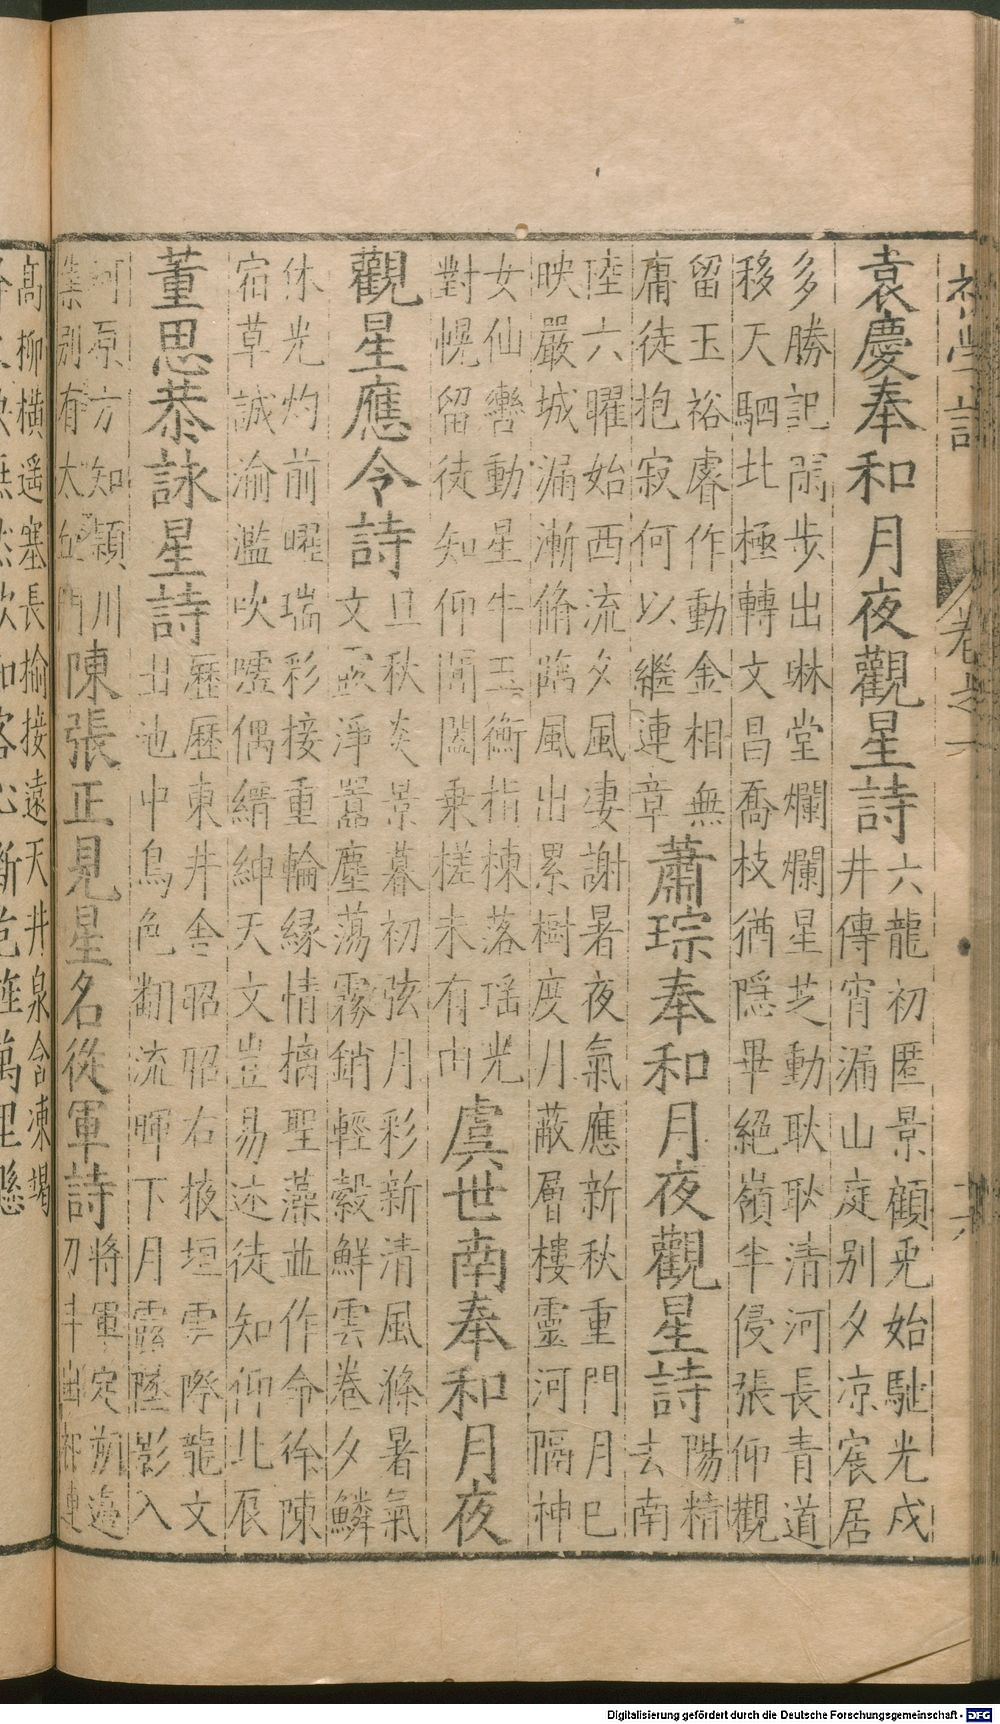 初學記 卷之一 十六
袁慶奉和月夜觀星詩
六龍初匿景顧兎始馳光戍
井傳宵漏山庭別夕凉宸居
多勝記閒步出琳堂爛爛星芝動耿耿清河長青道
移天駟北極轉文昌喬枝猶隱畢絕嶺半侵張仰觀
留玉裕睿作動金相無
庸徒抱寂何以繼連章
蕭琮奉和月夜觀星詩
陽精
去南
陸六曜始西流夕風凄謝暑夜氣應新秋重門月已
映嚴城漏漸脩臨風出累樹度月蔽層樓靈河隔神
女仙轡動星牛玉衡指棟落瑶光
對幌留徒知仰閶闔乗槎未有由
虞世南奉和月夜
觀星應令詩
早秋炎景暮初弦月彩新清風滌暑氣
文露淨囂塵蕩霧銷輕縠鮮雲卷夕鱗
休光灼前曜瑞彩接重輪緣情摛聖藻並作命徐陳
宿草誠渝濫吹噓偶縉紳天文豈易述徒知仰北辰
董思恭詠星詩
歷歷東井舍昭昭右掖垣雲際龍文
出池中鳥色翻流暉下月露墜影入
河原方知頴川
集別有太丘門
陳張正見星名從軍詩
將軍定朔邉
刀斗出祁連
高柳横遥塞長揄接遠天井泉含凍竭
萬里懸
Digitalisierung gefördert durch die Deutsche Forschungsgemeinschaft - DFG